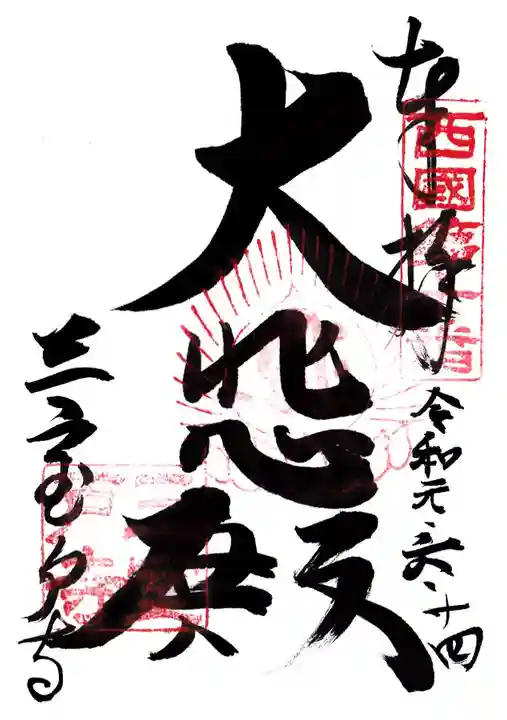 奉拝
西國第十番
令和元・六・十四
大悲殿
三室戸寺